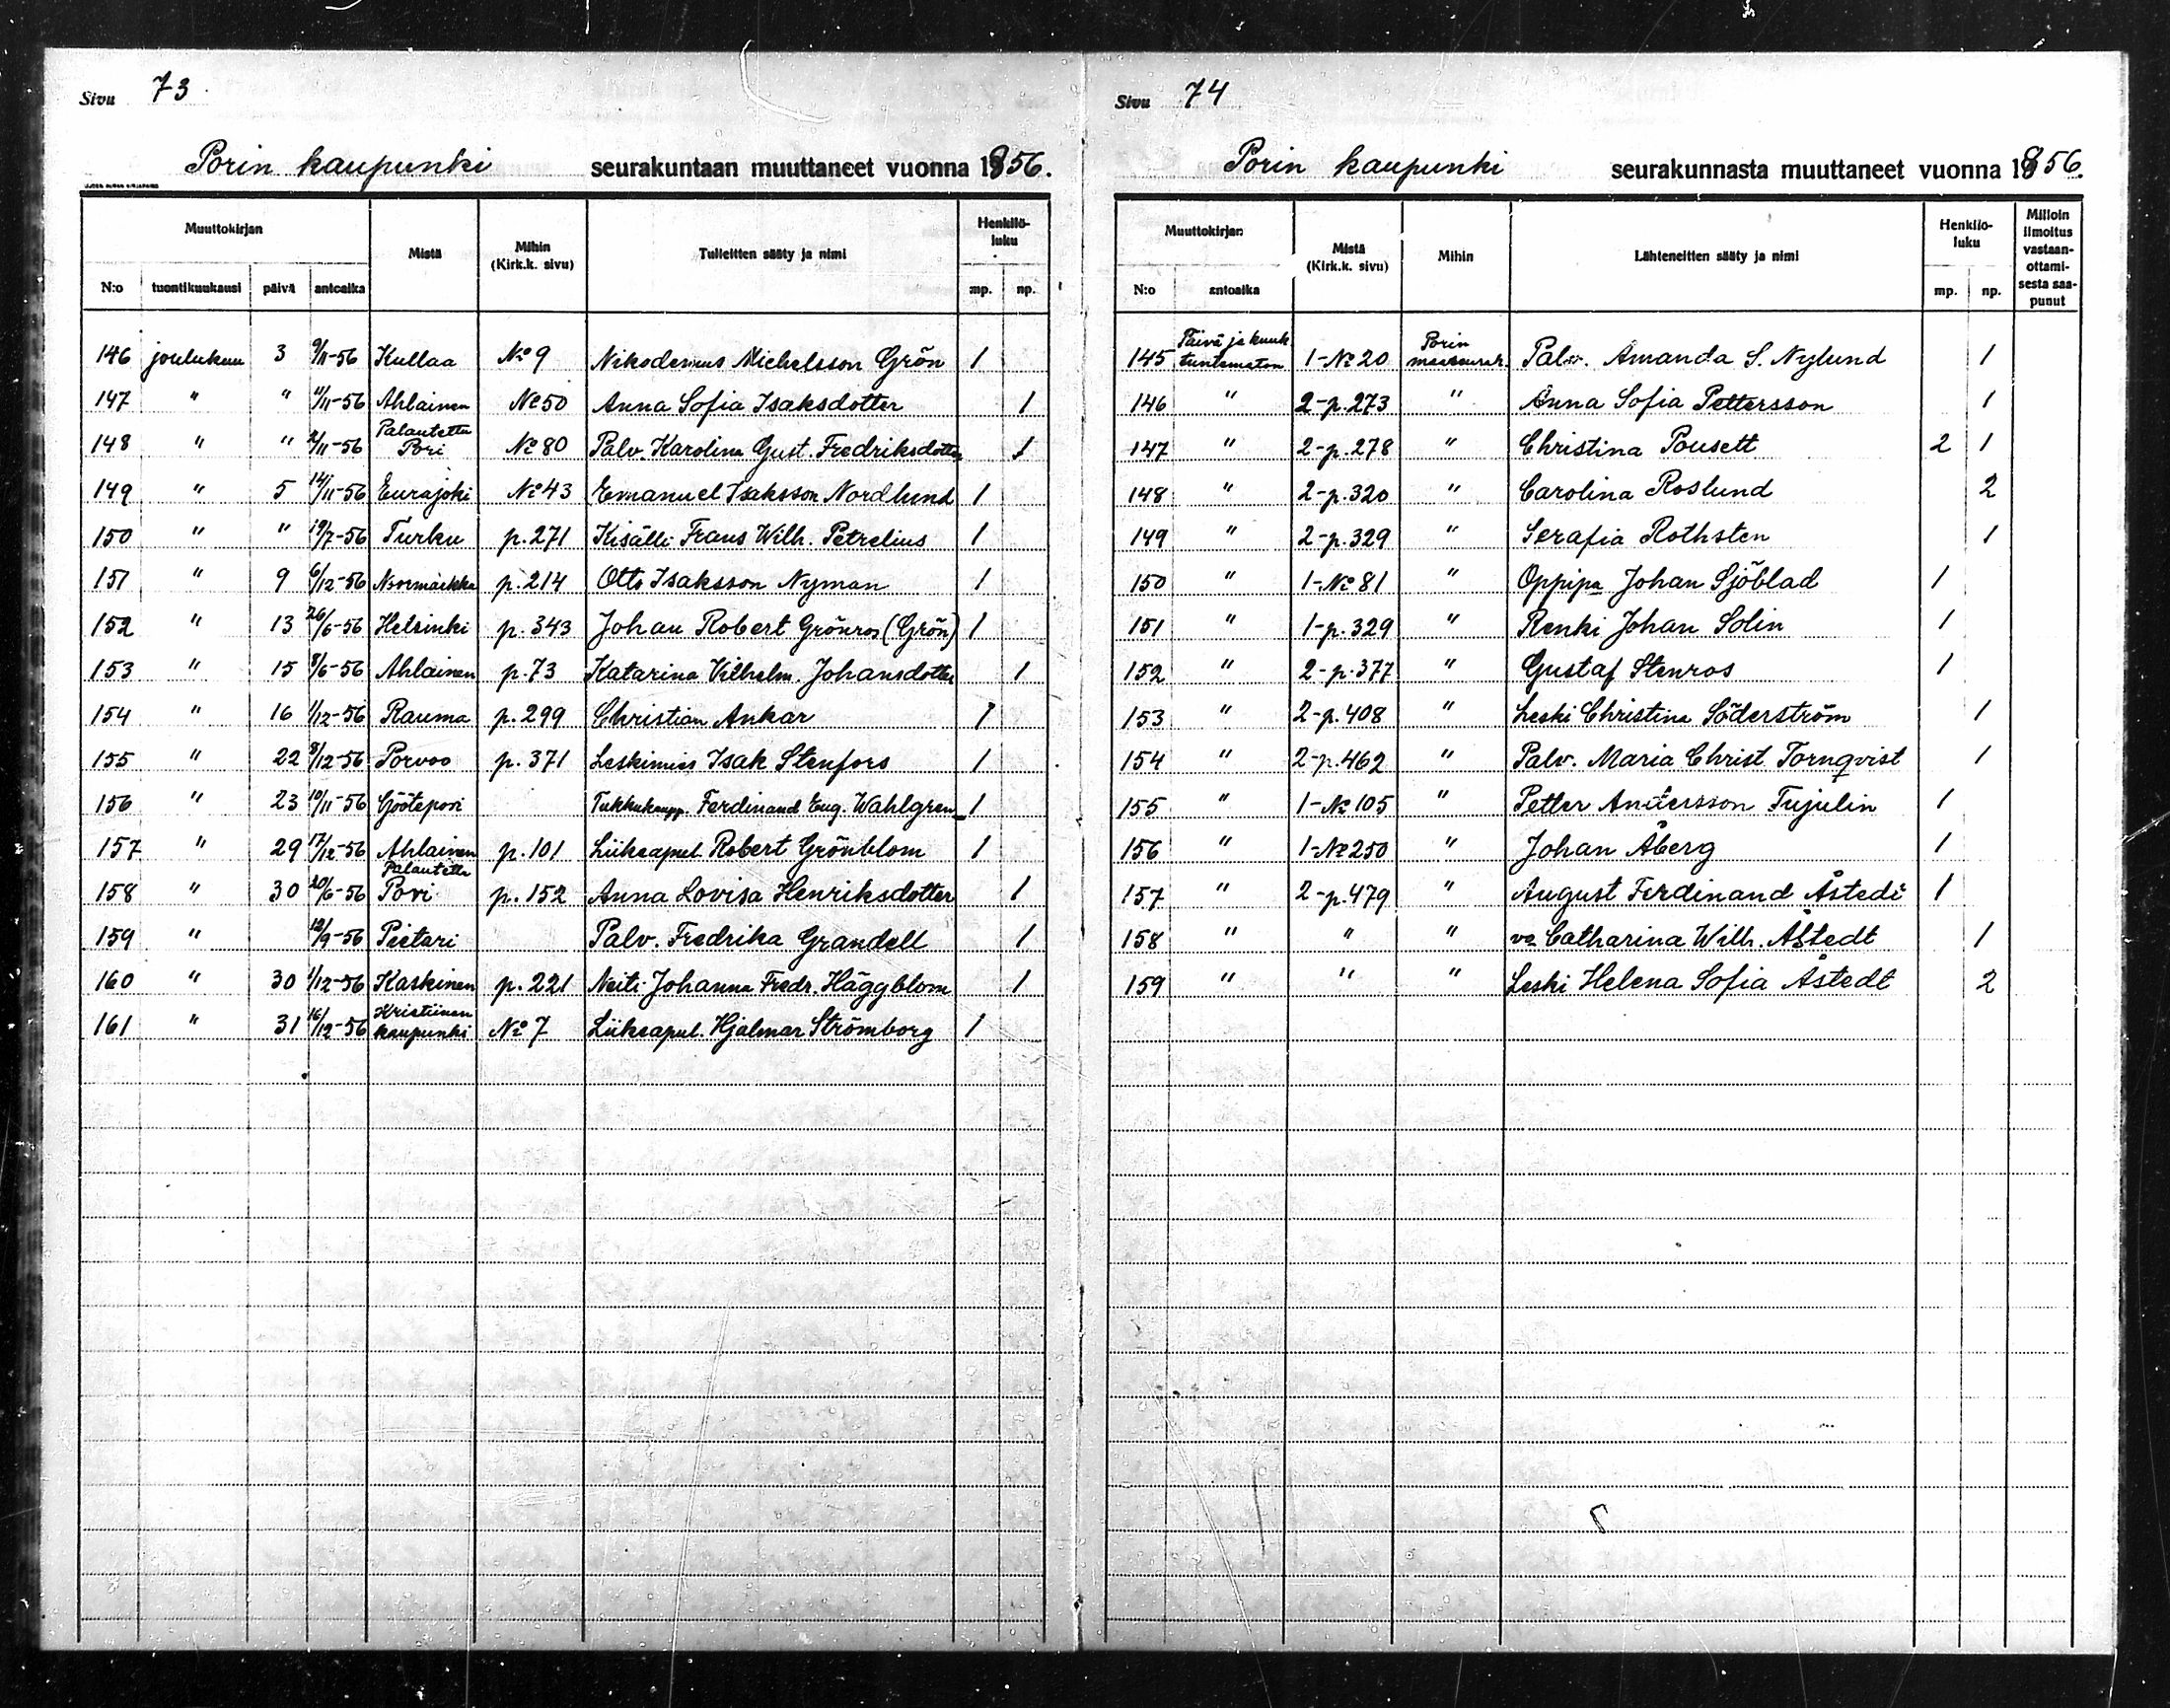 Sivu 73
Porin kaupunki seurakuntaan muuttaneet vuonna 1856.
Muuttokirjan
Mistä
Mihin (Kirk.k. sivu)
Tulleitten sääty ja nimi
Henkilö-luku
N:o tuontikuukausi päivä antoaika mp. np.
146 joulukuu 3 9/11-56 Kullaa No 9 Nikodemus Michelsson Grön 1
147 " " 11-56 Ahlainen No 50 Anna Sofia Isaksdotter 1
148 " " 2/11-56 Palautettu Pori No 80 Palv. Karolina Gust. Fredriksdotter 1
149 " 5 14/11-56 Eurajoki No 43 Emanuel Isaksson Nordlund 1
150 " " 19/7-56 Turku p.271 Kisälli Frans Wilh. Petrelius 1
151 " 9 6/12-56 Noormarkku p.214 Otto Isaksson Nyman 1
152 " 13 26/6-56 Helsinki p.343 Johan Robert Grönros (Grön) 1
153 " 15 8/6-56 Ahlainen p.73 Katarina Vilhelm. Johansdotter 1
154 " 16 1/12-56 Rauma p.299 Christian Ankar 1
155 " 22 8/12-56 Porvoo p.371 Leskimies Isak Stenfors 1
156 " 23 10/11-56 Göötepori Tukkukaupp. Ferdinand Eug. Wahlgren 1
157 " 29 17/12-56 Ahlainen p.101 Liikeapul. Robert Grönblom 1
158 " 30 20/6-56 Palautettu Pori p.152 Anna Lovisa Henriksdotter 1
159 " 12/9-56 Pietari Palv. Fredrika Grandell 1
160 " 30 1/12-56 Kaskinen p.221 Neiti Johanna Fredr. Häggblom 1
161 " 31 16/12-56 Kristiinan kaupunki No 7 Liikeapul. Hjalmar Strömborg 1
Sivu 74
Porin kaupunki seurakunnasta muuttaneet vuonna 1856.
Muuttokirjan
Mistä (Kirk.k. sivu)
Mihin
Lähteneitten sääty ja nimi
Henkilö-luku
Milloin ilmoitus vastaan-ottami-sesta saa-punut
N:o antoaika mp. np.
145 Päivä ja kuuk. tuntematon 1-No 20 Porin maaseurak. Palv. Amanda S. Nylund 1
146 " 2-p.273 " Anna Sofia Pettersson 1
147 " 2-p.278 " Christina Pousett 2 1
148 " 2-p.320 " Carolina Roslund 2
149 " 2-p.329 " Serafia Rothsten 1
150 " 1-No 81 " Oppipa Johan Sjöblad 1
151 " 1-p.329 " Renki Johan Solin 1
152 " 2-p.377 " Gustaf Stenros 1
153 " 2-p.408 " Leski Christina Söderström 1
154 " 2-p.462 " Palv. Maria Christ. Tornqvist 1
155 " 1-No 105 " Petter Andersson Tujulin 1
156 " 1-No 250 " Johan Åberg 1
157 " 2-p.479 " August Ferdinand Åstedt 1
158 " " " va Catharina Wilh. Åstedt 1
159 " " " Leski Helena Sofia Åstedt 2